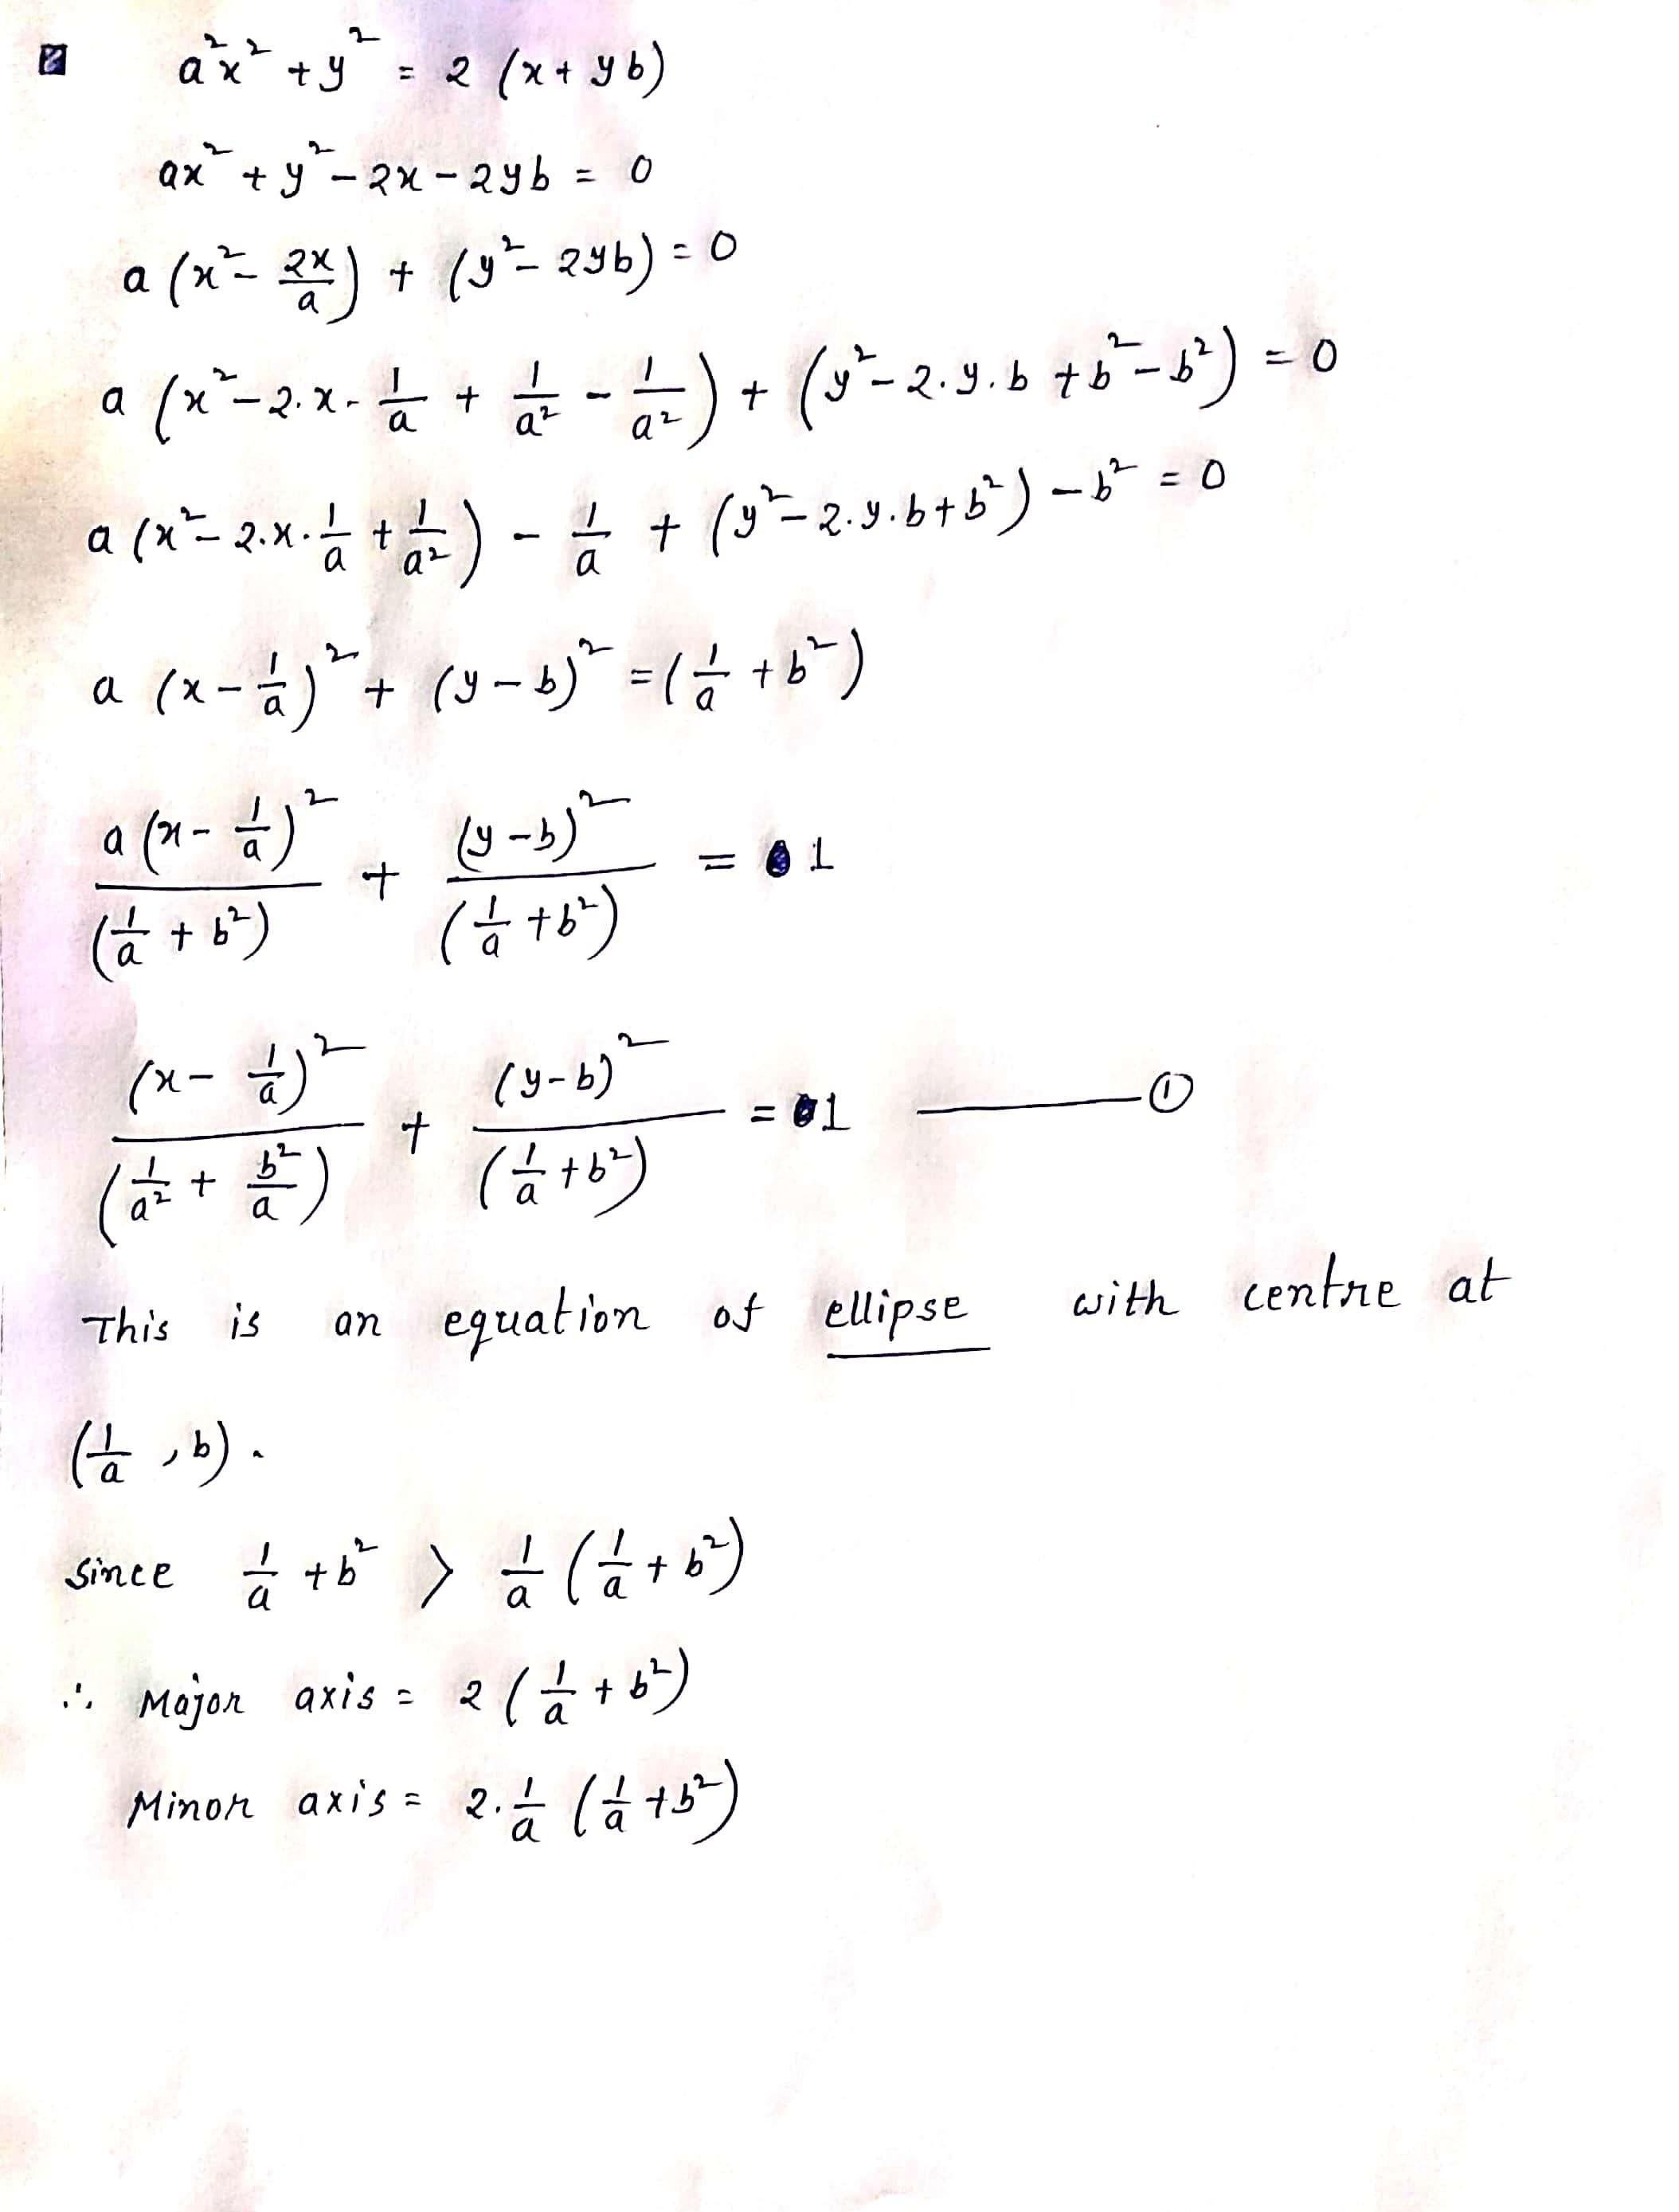 a²x² + y² = 2 (x + yb)
ax² + y² - 2x - 2yb = 0
a (x² - 2x/a) + (y² - 2yb) = 0
a (x² - 2.x. 1/a + 1/a² - 1/a²) + (y² - 2.y.b + b² - b²) = 0
a (x² - 2.x. 1/a + 1/a²) - 1/a + (y² - 2.y.b + b²) - b² = 0
a (x - 1/a)² + (y - b)² = (1/a + b²)
a (x - 1/a)² / (1/a + b²) + (y - b)² / (1/a + b²) = 1
(x - 1/a)² / (1/a² + b²/a) + (y - b)² / (1/a + b²) = 1 ——— ①
This is an equation of ellipse with centre at
(1/a , b) .
Since 1/a + b² > 1/a (1/a + b²)
∴ Major axis = 2 (1/a + b²)
Minor axis = 2. 1/a (1/a + b²)